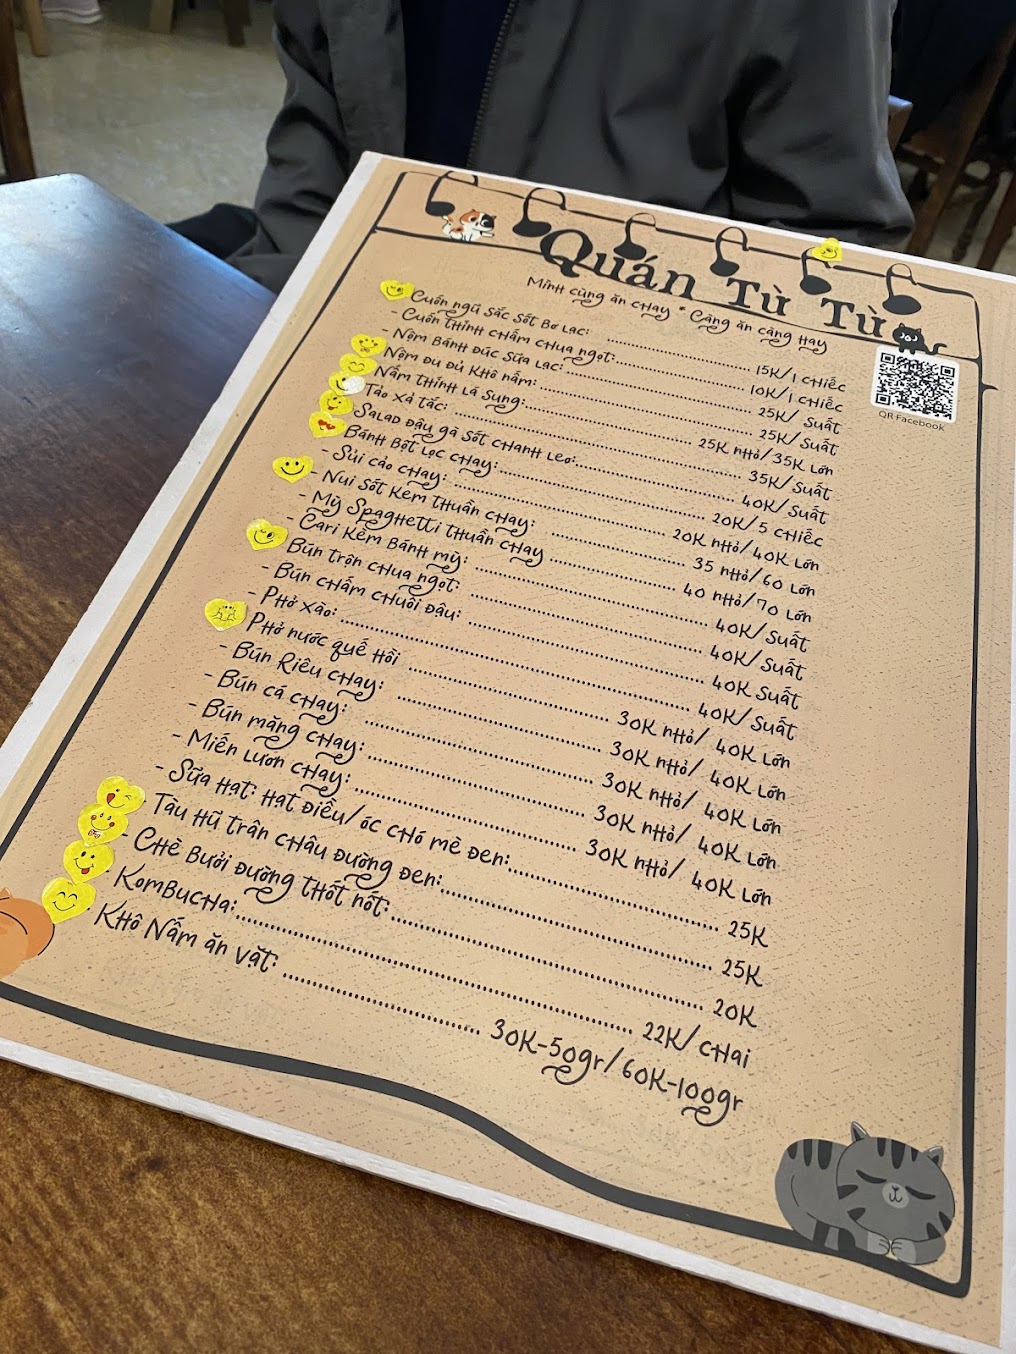 Quán Từ Từ
Mình cùng ăn chay * Càng ăn càng hay
QR Facebook
Cuốn ngũ sắc sốt bơ lạc: 15K/1 chiếc
- Cuốn thính chấm chua ngọt: 10K/1 chiếc
- Nộm bánh đúc sữa lạc: 25K/ suất
Nộm đu đủ khô nấm: 25K/suất
Nấm thính lá sung: 25K nhỏ/35K lớn
Tảo xả tắc: 35K/suất
Salad đậu gà sốt chanh leo: 40K/suất
Bánh bột lọc chay: 20K/5 chiếc
- Sủi cảo chay: 20K nhỏ/40K lớn
- Nui sốt kem thuần chay: 35 nhỏ/60 lớn
- Mỳ Spaghetti thuần chay 40 nhỏ/70 lớn
- Cari kèm bánh mỳ: 40K/suất
Bún trộn chua ngọt: 40K/suất
- Bún chấm chuối đậu: 40K suất
- Phở xào: 40K/suất
Phở nước quế hồi 30K nhỏ/ 40K lớn
- Bún riêu chay: 30K nhỏ/ 40K lớn
- Bún cá chay: 30K nhỏ/ 40K lớn
- Bún măng chay: 30K nhỏ/ 40K lớn
- Miến lươn chay: 30K nhỏ/ 40K lớn
- Sữa hạt: hạt điều/ óc chó mè đen: 25K
Tàu hũ trân châu đường đen: 25K
- Chè bưởi đường thốt nốt: 20K
Kombucha: 22K/ chai
Khô nấm ăn vặt: 30K-50gr/ 60K-100gr